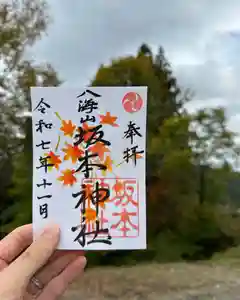 奉拝
八海山
坂本神社
坂本
令和七年十一月